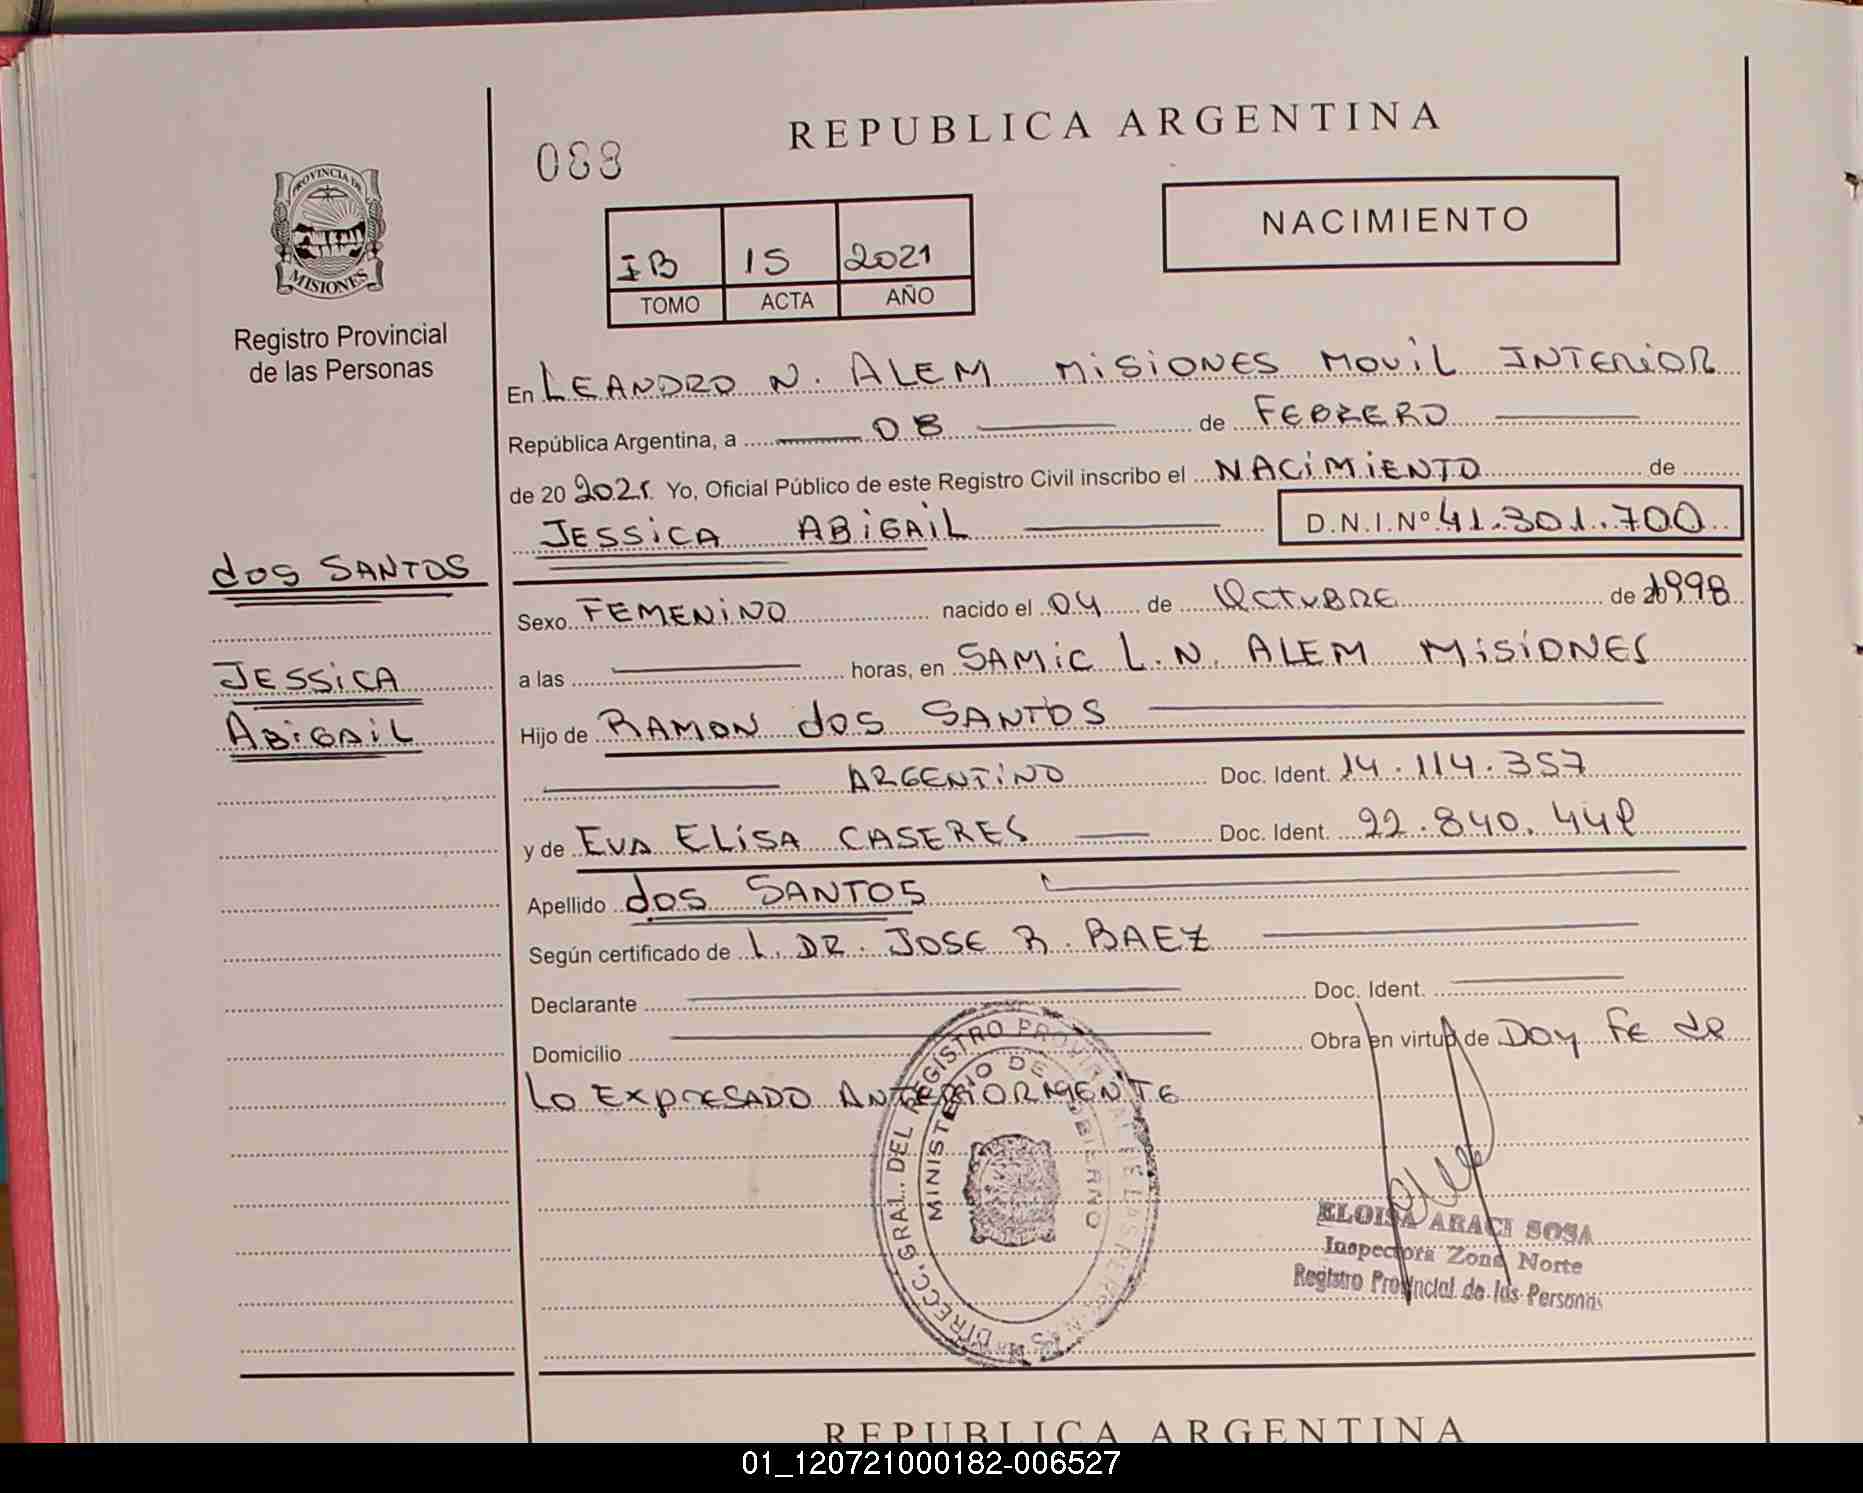 REPUBLICA ARGENTINA
088
PROVINCIA DE
MISIONES
Registro Provincial
de las Personas
NACIMIENTO
IB 15 2021
TOMO ACTA AÑO
En LEANDRO N. ALEM MISIONES MOVIL INTERIOR
República Argentina, a 08 de FEBRERO
de 20 2021. Yo, Oficial Público de este Registro Civil inscribo el NACIMIENTO de
JESSICA ABIGAIL D.N.I.Nº 41.301.700
dos SANTOS
JESSICA
ABIGAIL
Sexo FEMENINO nacido el 04 de OCTUBRE de 1998
a las horas, en SAMIC L.N. ALEM MISIONES
Hijo de RAMON dos SANTOS
ARGENTINO Doc. Ident. 14.114.357
y de EVA ELISA CASERES Doc. Ident. 22.840.442
Apellido dos SANTOS
Según certificado de L. DR. JOSE R. BAEZ
Declarante Doc. Ident.
Domicilio Obra en virtud de Doy Fe de
Lo EXPRESADO ANTERIORMENTE
DIRECC. GRAL. DEL REGISTRO PROVINCIAL DE LAS PERSONAS
MINISTERIO DE GOBIERNO
ELOISA ARACI SOSA
Inspectora Zona Norte
Registro Provincial de las Personas
REPUBLICA ARGENTINA
01_120721000182-006527